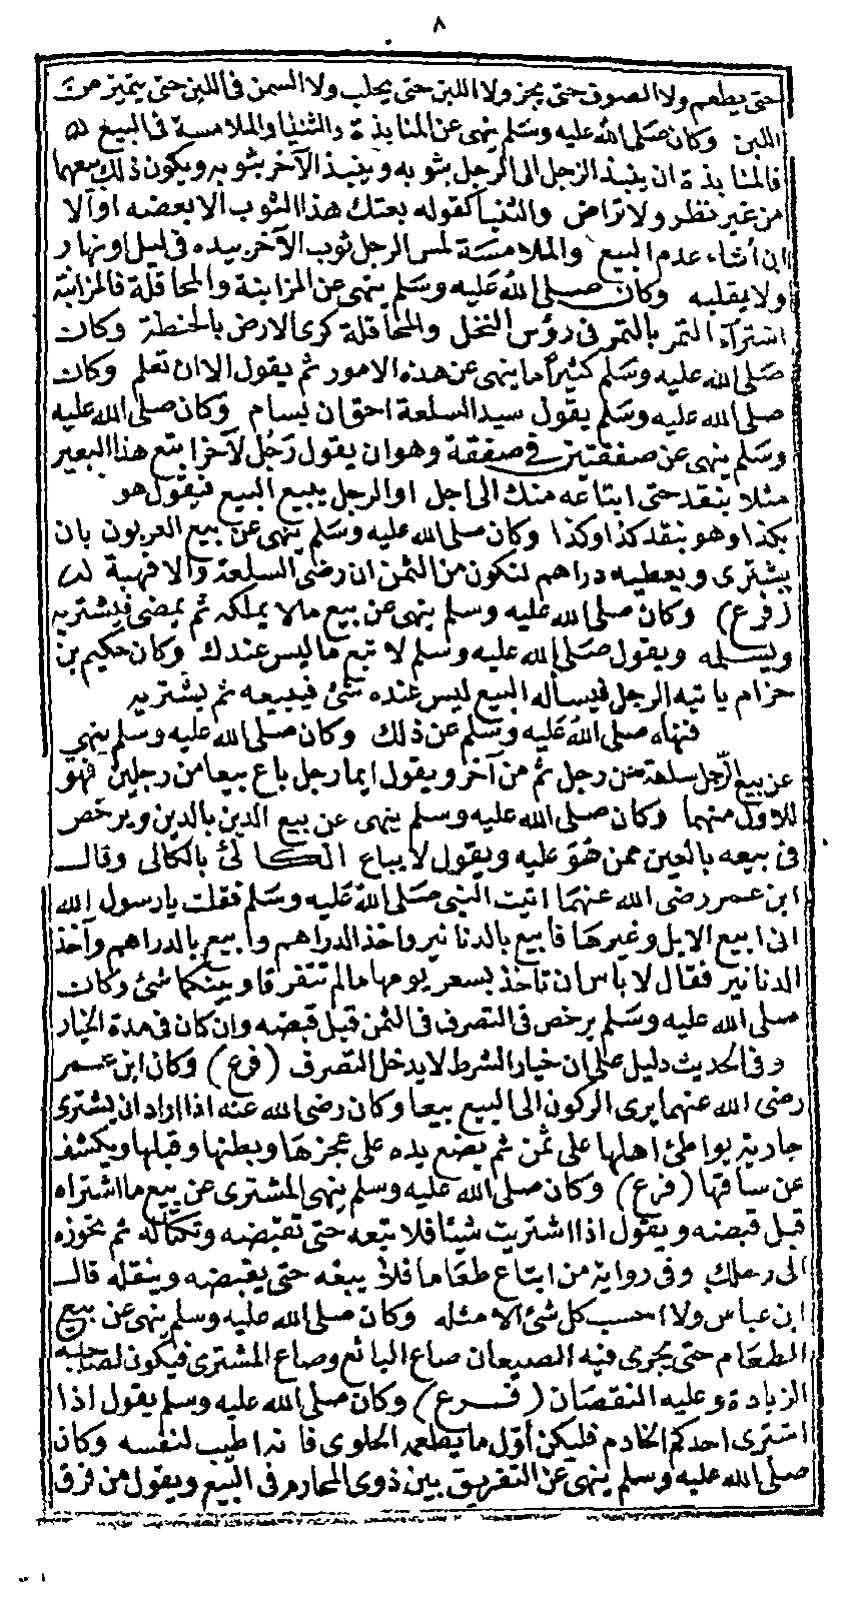 ٨
حتى يطعم ولا الصوف حتى يجز ولا اللبن حتى يحلب ولا السمن فى اللبن حتى يتميز من
اللبن وكان صلى الله عليه وسلم ينهى عن المنابذة والثنيا والملامسة فى البيع
فالمنابذة ان ينبذ الرجل الى الرجل بثوبه وينبذ الآخر بثوبه ويكون ذلك بيعهما
من غير نظر ولا تراض والثنيا كقوله بعتك هذا الثوب الا بعضه او الا
ان أشاء عدم البيع والملامسة لمس الرجل ثوب الآخر بيده فى ليل او نهار
ولا يقلبه وكان صلى الله عليه وسلم ينهى عن المزابنة والمحاقلة فالمزابنة
اشتراء التمر بالتمر فى رؤس النخل والمحاقلة كرى الارض بالحنطة وكان
صلى الله عليه وسلم كثيرا ما ينهى عن هذه الامور ثم يقول الا ان تعلم وكان
صلى الله عليه وسلم يقول سيد السلعة احق ان يسام وكان صلى الله عليه
وسلم ينهى عن صفقتين فى صفقة وهو ان يقول رجل لآخر ابتع هذا البعير
مثلا بنقد حتى ابتاعه منك الى اجل او الرجل يبيع البيع فيقول هو
بكذا وهو بنقد كذا وكذا وكان صلى الله عليه وسلم ينهى عن بيع العربون بان
يشترى ويعطيه دراهم لتكون من الثمن ان رضى السلعة والا فهبة له
(فرع) وكان صلى الله عليه وسلم ينهى عن بيع ما لا يملكه ثم يمضى فيشتريه
ويسلمه ويقول صلى الله عليه وسلم لا تبع ما ليس عندك وكان حكيم بن
حزام ياتيه الرجل فيسأله البيع ليس عنده شئ فيبيعه ثم يشتريه
فنهاه صلى الله عليه وسلم عن ذلك وكان صلى الله عليه وسلم ينهى
عن بيع الرجل سلعة من رجل ثم من آخر ويقول ايما رجل باع بيعا من رجلين فهو
للاول منهما وكان صلى الله عليه وسلم ينهى عن بيع الدين بالدين ويرخص
فى بيعه بالعين ممن هو عليه ويقول لا يباع الكالئ بالكالى وقال
ابن عمر رضى الله عنهما اتيت النبى صلى الله عليه وسلم فقلت يا رسول الله
انى ابيع الابل وغيرها فابيع بالدنانير واخذ الدراهم وابيع بالدراهم وآخذ
الدنانير فقال لا باس ان تاخذ بسعر يومها ما لم تتفرقا وبينكما شئ وكان
صلى الله عليه وسلم يرخص فى التصرف فى الثمن قبل قبضه وان كان فى مدة الخيار
وفى الحديث دليل على ان خيار الشرط لا يدخل التصرف (فرع) وكان ابن عمر
رضى الله عنهما يرى الركون الى البيع بيعا وكان رضى الله عنه اذا اراد ان يشترى
جارية يواطئ اهلها على ثمن ثم يضع يده على عجزها وبطنها وقبلها ويكشف
عن ساقها (فرع) وكان صلى الله عليه وسلم ينهى المشترى عن بيع ما اشتراه
قبل قبضه ويقول اذا اشتريت شيئا فلا تبعه حتى تقبضه وتكتاله ثم تحوزه
الى رحلك وفى رواية من ابتاع طعاما فلا يبعه حتى يقبضه وينقله قال
ابن عباس ولا احسب كل شئ الا مثله وكان صلى الله عليه وسلم ينهى عن بيع
الطعام حتى يجرى فيه الصيعان صاع البائع وصاع المشترى فيكون لصاحبه
الزيادة وعليه النقصان (فرع) وكان صلى الله عليه وسلم يقول اذا
اشترى احدكم الخادم فليكن أول ما يطعمه الحلوى فانه اطيب لنفسه وكان
صلى الله عليه وسلم ينهى عن التفريق بين ذوى المحارم فى البيع ويقول من فرق